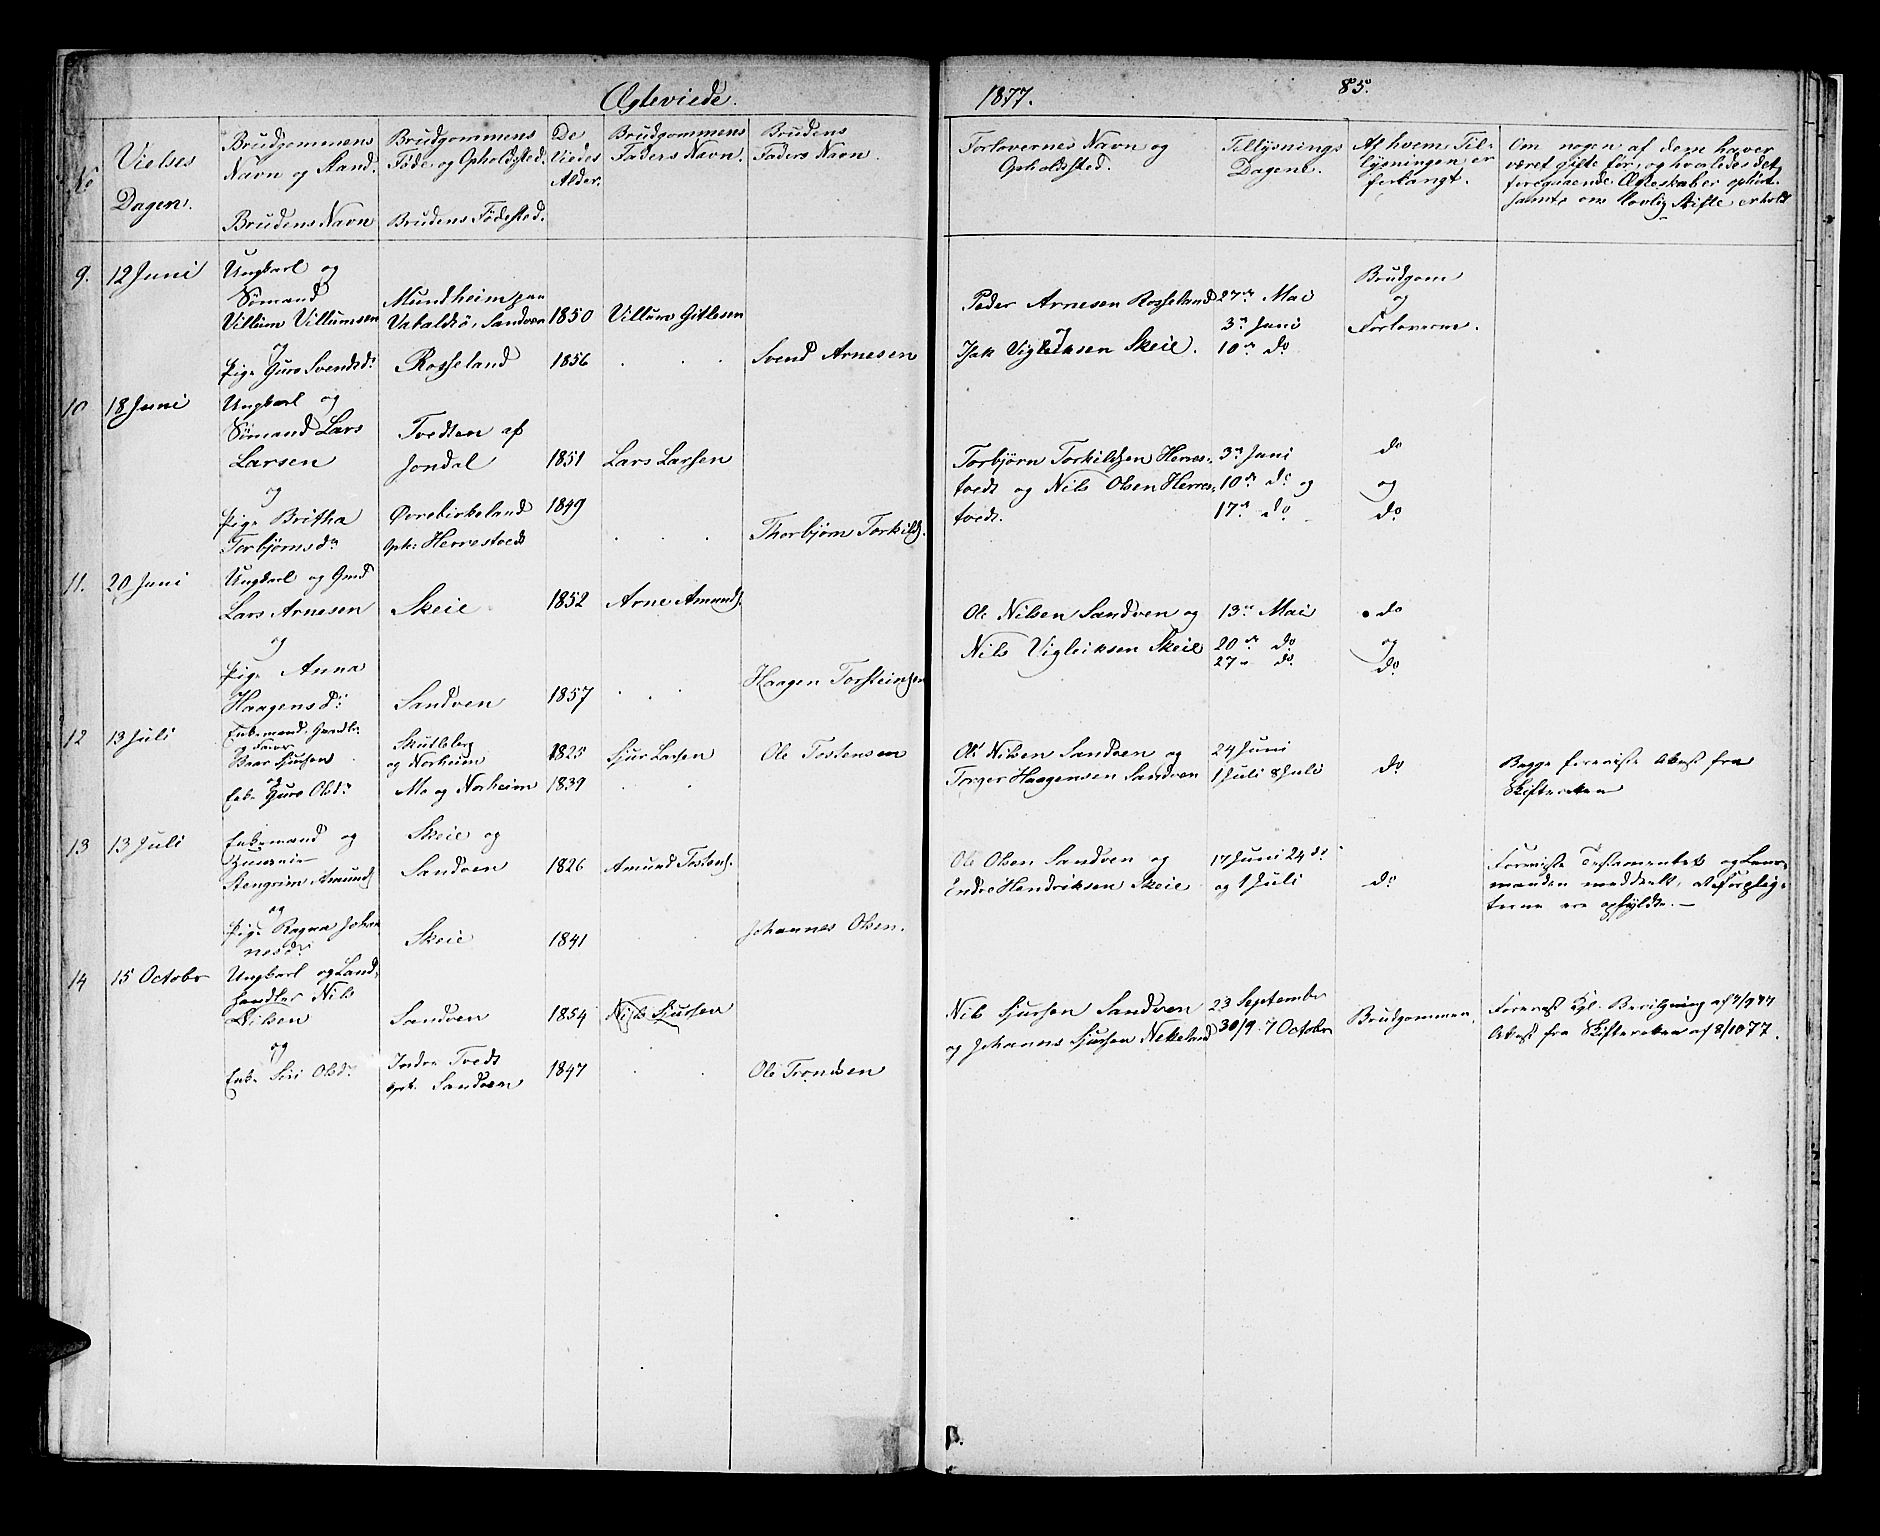 Ægteviede.
1877.
85.
No
Vielses
Dagen.
Brudgommens
Navn og Stand.
Brudens Navn
Brudgommens
Føde og Opholdsted.
Brudens Fødested.
De
Viedes
Alder.
Brudgommens
Faders Navn.
Brudens
Faders Navn.
Forlovernes Navn og
Opholdsted.
Tillysnings
Dagene.
Af hvem Til-
lysningen er
forlangt.
Om nogen af dem haver
været gifte før, og hvorledes det
foregaaende Ægteskab er ophørt
samt om lovlig Skifte er holdt
9.
12 Juni
Ungkarl og
Sømand
Villum Villumsen
og
Pige Guro Svendsdr
Mundheim paa
Varaldsø, Sandven
Rosseland
1850
1856
Villum Gitlesen
Svend Arnesen
Peder Arnesen Rosseland
og
Isak Vigleiksen Skeie.
27de Mai
3die Juni
10de do
Brudgom
og
Forloverne.
10
18 Juni
Ungkarl og
Sømand Lars
Larsen
og
Pige Britha
Torbjørnsdr
Tvedten af
Jondal
Øvrebirkeland
Oph: Herrestvedt
1851
1849
Lars Larsen
Thorbjørn Torkilds.
Torbjørn Torkildsen Herres-
tvedt og Nils Olsen Herres-
tvedt.
3die Juni
10de do og
17de do
do
og
do
11.
20 Juni
Ungkarl og Gmd
Lars Arnesen
og
Pige Anna
Haagensdr
Skeie
Sandven
1852
1857
Arne Amunds.
Haagen Torsteinsen
Ole Nilsen Sandven og
Nils Vigleiksen Skeie
13de Mai
20de do
27de do
do
og
do
12
13 Juli
Enkemand
Baar Sjursen
og
Enke Guro Olsdr
Skutleberg
og Norheim
Mo og Norheim
1825
1839
Sjur Larsen
Ole Tostensen
Ole Nilsen Sandven og
Torger Haagensen Sandven
24 Juni
1 Juli 8 Juli
do
Begge foreviste Attest fra
Skifteretten
13
13 Juli
Enkemand og
Stengrim Amunds
og
Pige Ragna Johan
nesdr
Skeie og
Sandven
Skeie
1826
1841
Amund Tostens.
Johannes Olsen.
Ole Olsen Sandven og
Endre Hendriksen Skeie
17 Juni 24 do
og 1 Juli
do
Foreviste Testamentet og Lens-
manden meddeelt, at Forplig-
terne ere opfyldte.
14
15 Octobr
Ungkarl og Land-
handler Nils
Nilsen
og
Enke Siri Olsdr
Sandven
Indre Tvedt
oph. Sandven
1854
1847
Nils Sjursen
Ole Trondsen
Nils Sjursen Sandven
og Johannes Sjursen Netteland
23 September
30/9 7 Octobr
Brudgommen.
Forevist Kgl. Bevilgning af 7/9 77
Attest fra Skifteretten af 8/10 77.